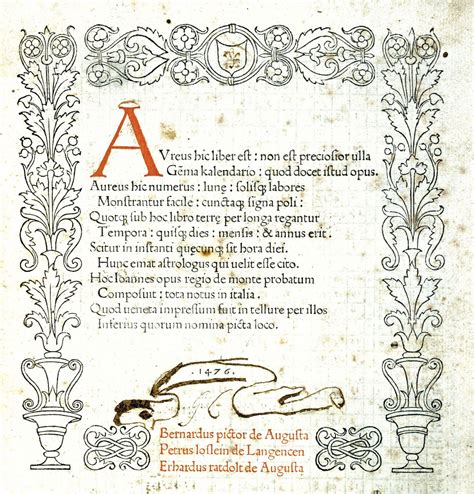 AVreus hic liber est: non est preciosior ulla
Gẽma kalendario: quod docet istud opus.
Aureus hic numerus: lune: solisq; labores
Monstrantur facile: cunctaq; signa poli:
Quotq; sub hoc libro terrę per longa regantur
Tempora: quisq; dies: mensis: & annus erit.
Scitur in instanti quęcunq; sit hora diei.
Hunc emat astrologus qui uelit esse cito.
Hoc Ioannes opus regio de monte probatum
Composuit: tota notus in italia.
Quod ueneta impressum fuit in tellure per illos
Inferius quorum nomina picta loco.
.1476.
Bernardus pictor de Augusta
Petrus loslein de Langencen
Erhardus ratdolt de Augusta